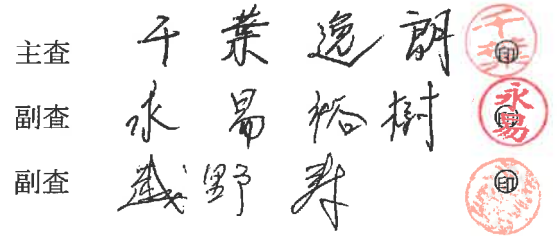 主査 千葉逸朗 千葉 印
副査 永易裕樹 永易 印
副査 越野寿 印